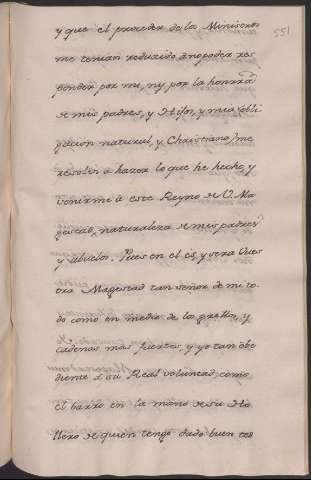 551
y que el proceder de los Ministros
me tenian reduzido á no poder res
ponder por mi, ny por la honra
de mis padres, y Hijos, y mia obli
gacion natural, y Christiano, me
resolbi a hazer lo que he hecho, y
venirme á este Reyno de V. Ma
gestad, naturaleza de mis padres
y Abuelos. Pues en el es, y sera Vues
tra Magestad tan señor de mi to
do como en medio de los grillos, y
cadenas mas fuertes, y yo tan obe
diente á su Real voluntad, como
el barro en la mano de su Ho
llero de quien tengo dado buen tes